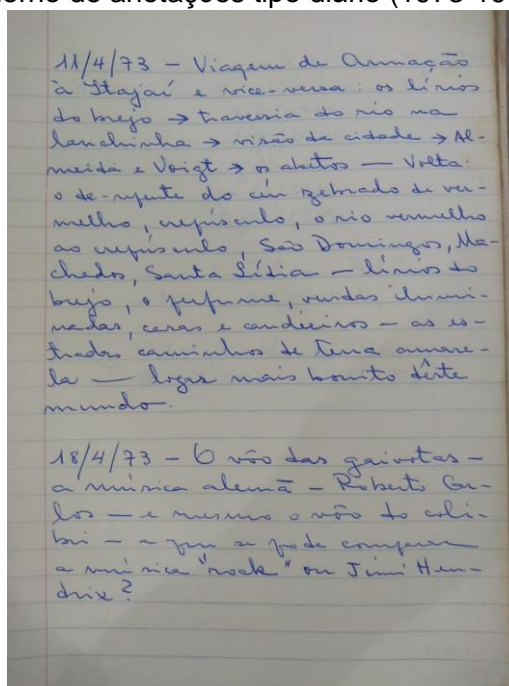 erno de anotações tipo diário (1973-19
11/4/73 - Viagem de Armação
à Itajaí e vice-versa: os lírios
do brejo → travessia do rio na
lanchinha → visão da cidade → Al-
meida e Voigt → os abetos — Volta:
o de-repente do céu zebrado de ver-
melho, crepúsculo, o rio vermelho
ao crepúsculo, São Domingos, Ma-
chados, Santa Lídia - lírios do
brejo, o perfume, vendas ilumi-
nadas, casas e candieiros - as es-
tradas caminhos de terra amare-
la — lugar mais bonito dêste
mundo.
18/4/73 - O vôo das gaivotas -
a música alemã - Roberto Car-
los — e mesmo o vôo do coli-
bri - a que se pode comparar
a música "rock" ou Jimi Hen-
drix?